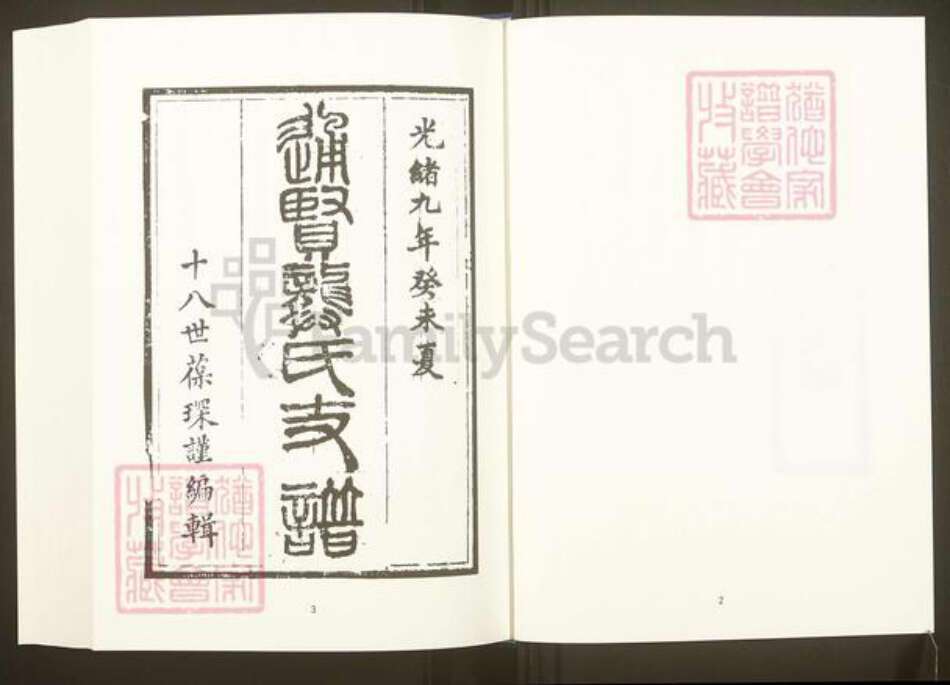 光緒九年癸未夏
通賢龔氏支譜
十八世葆琛謹編輯
3
2
猶他家
譜學會
收藏
猶他家
譜學會
收藏
FamilySearch